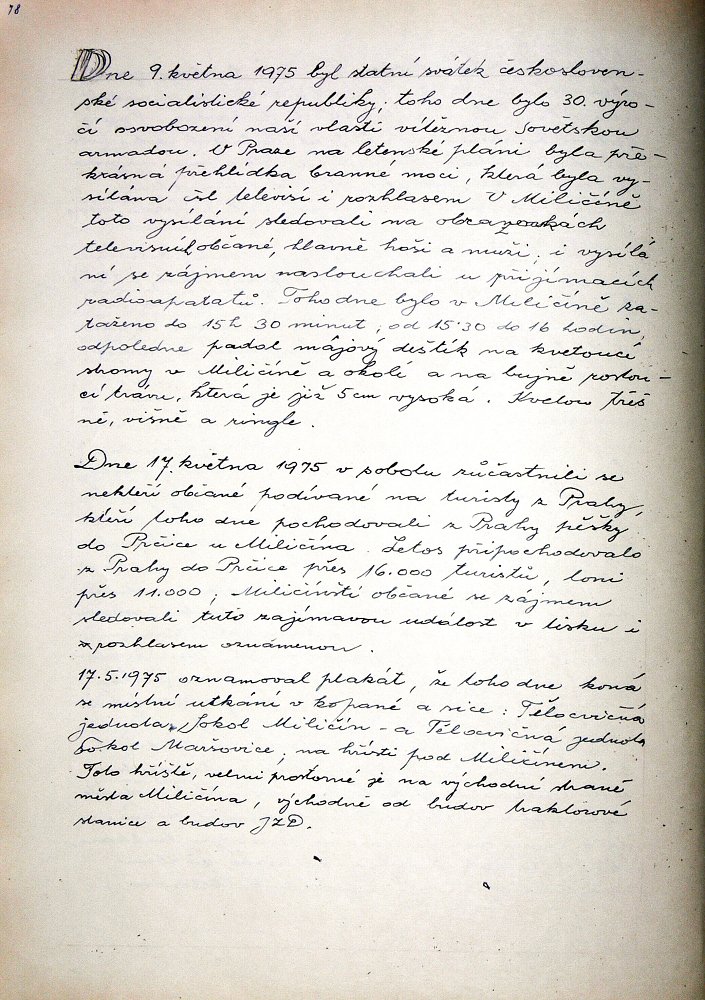 78
Dne 9. května 1975 byl statní svátek českosloven-
ské socialistické republiky; toho dne bylo 30. výro-
čí osvobození naší vlasti vítěznou Sovětskou
armadou. V Praze na letenské pláni byla pře-
krásná přehlídka branné moci, která byla vy-
sílána čsl televisi i rozhlasem V Miličíně
toto vysílání sledovali na obrazovkách
televisních občané, hlavně hoši a muži; i vysílá
ní se zájmem naslouchali u přijímacích
radioapatatů. Toho dne bylo v Miličíně za-
taženo do 15h 30 minut, od 15.30 do 16 hodin,
odpoledne padal májový deštík na kvetoucí
stromy v Miličíně a okolí a na bujně rostou-
cí trávu, která je již 5 cm vysoká. Kvetou třeš
ně, višně a ringle.
Dne 17. května 1975 v sobotu zůčastnili se
nekteří občané podívané na turisty z Prahy,
kteří toho dne pochodovali z Prahy pěšky
do Prčice u Miličína. Letos připochodovalo
z Prahy do Prčice přes 16.000 turistů, loni
přes 11.000; Miličínští občané se zájmem
sledovali tuto zajímavou událost v tisku i
rozhlasem oznámenou.
17.5.1975 oznamoval plakát, že toho dne koná
se místní utkání v kopané a sice: Tělocvičná
jednota Sokol Miličín - a Tělocvičná jednota
Sokol Maršovice, na hřišti pod Miličínem.
Toto hřiště, velmi prostorné je na východní straně
města Miličína, východně od budov traktorové
stanice a budov JZD.